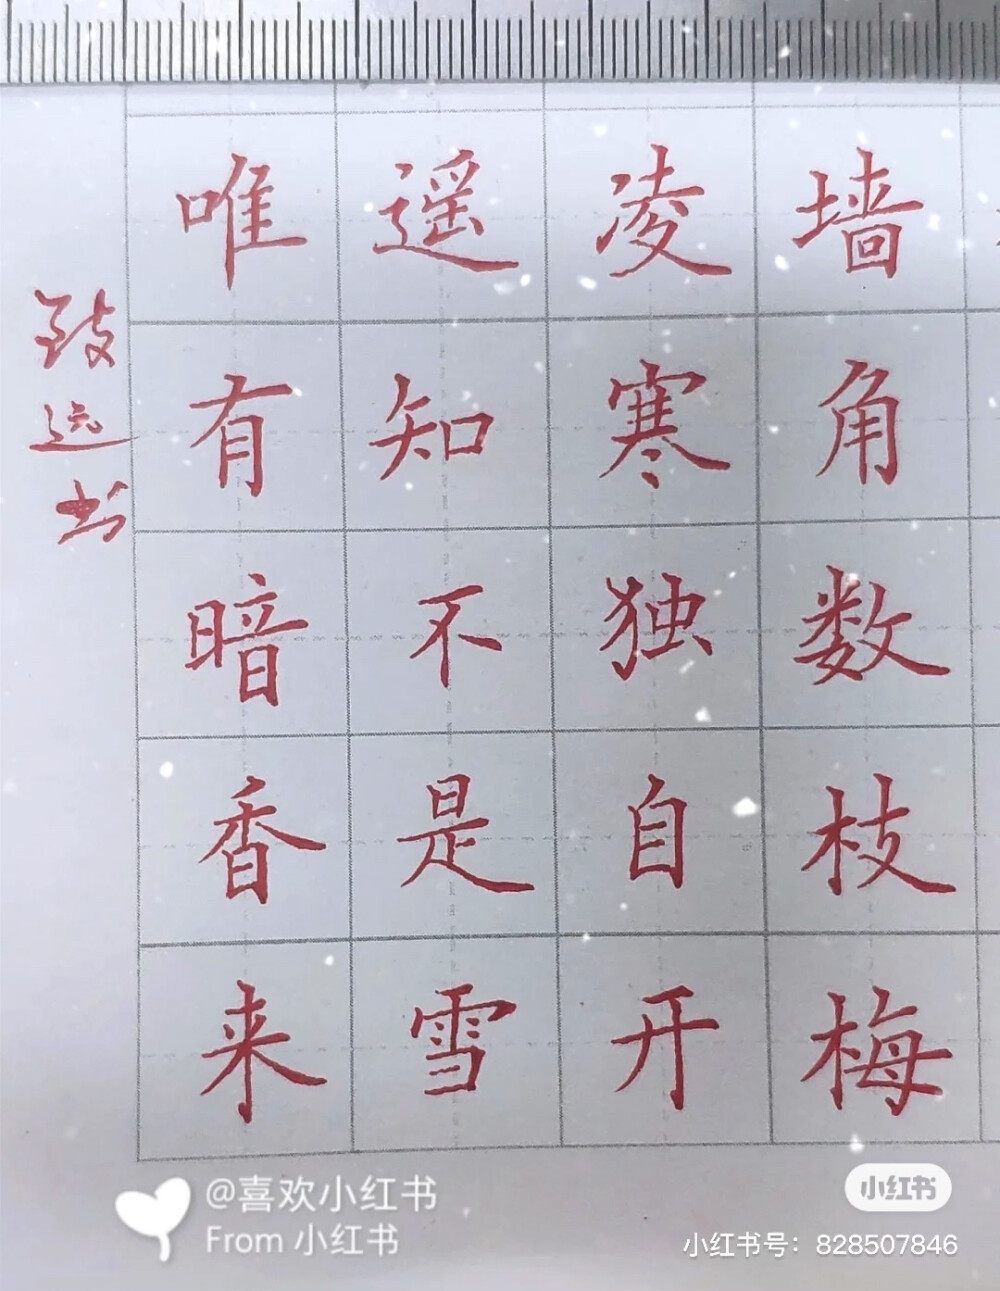 墙角数枝梅
凌寒独自开
遥知不是雪
唯有暗香来
致远书
@喜欢小红书
From 小红书
小红书
小红书号：828507846